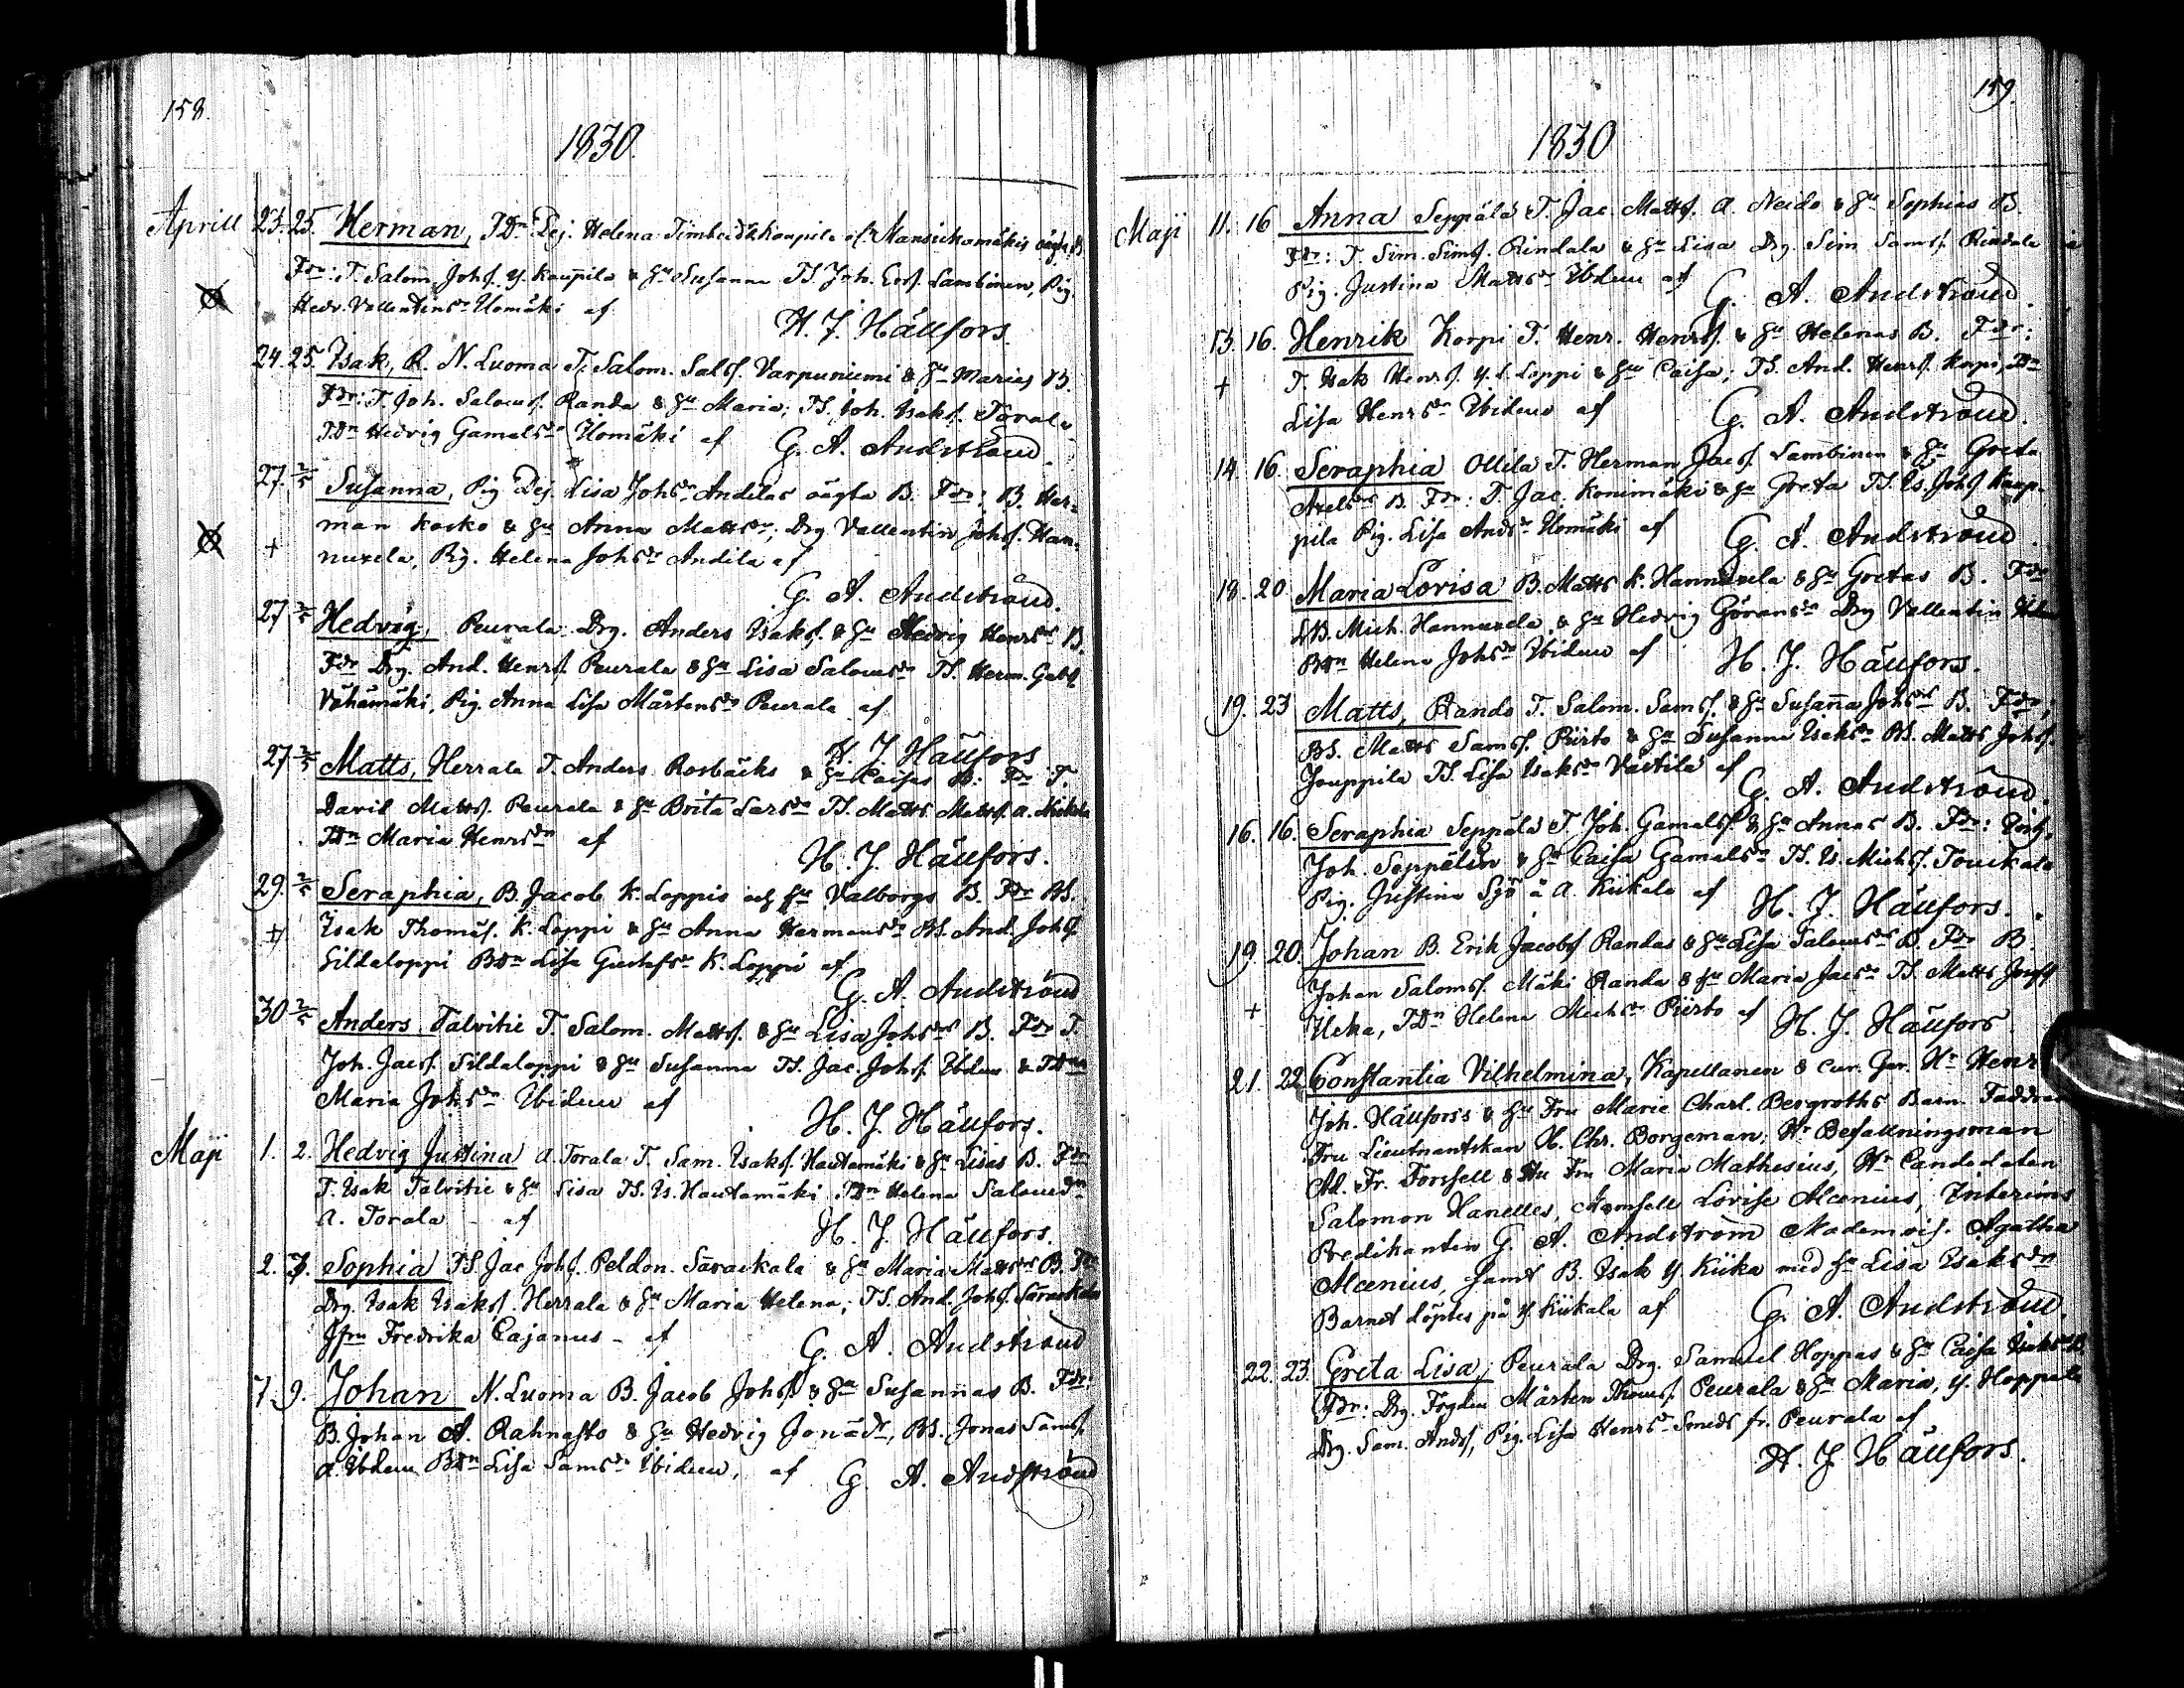 158.
1830.
Aprill 23. 25. Herman, TDn Dej. Helena Kaupila Mansickamäkis oägta B.
Fdr: T. Salom. Johs. Y. Kaupila & Hu Susanna TS. Joh. Ers. Lambinen, Pig.
Hedv. Vallentinsdr Uomäki af H. J. Häufors.
24. 25. Isak, R. N. Luoma T. Salom. Sals. Varpuniemi & Hu Marias B.
Fdr: T. Joh. Saloms. Randa & Hu Maria; TS. Joh. Isaks. Torala
TDn Hedvig Gamelsdr Uomäki af G. A. Andström.
27. 2/5 Susanna, Pig. Dej. Lisa Johsdr Andilas oägta B. Fdr: B. Her-
man Kocko & Hu Anna Mattsdr; Drg Vallentin Johs. Han-
+ nuxela, Pig. Helena Johsdr Andila af
G. A. Andström.
27 2/5 Hedvig, Peurala Drg. Anders Isaks. & Hu Hedvig Henrsdrs B.
Fdr Drg. And. Henrs. Peurala & Hu Lisa Salomsdr TS. Herm. Gabs.
Vähämäki, Pig. Anna Lisa Mårtensdr Peurala af
H. J. Häufors
27 2/5 Matts, Herrala T. Anders Rosbäcks & Hu Caisas B. Fdr T.
David Matts. Peurala & Hu Brita Larsdr TS. Matts Matts. A.
TDn Maria Henrsdr af H. J. Häufors.
29. 2/5 Seraphia, B. Jacob K. Loppis och Hu Valborgs B. Fdr BS.
+ Isak Thomas. K. Loppi & Hu Anna Hermansdr BS. And. Johs.
Sildaloppi BDn Lisa Gustafsdr K. Loppi af
G. A. Andström
30 2/5 Anders, Talvitie T. Salom. Matts. & Hu Lisa Johsdrs B. Fdr T.
Joh. Jacs. Sildaloppi & Hu Susanna TS. Jac. Johs. Ibdem & TDn
Maria Johsdr Ibidem af H. J. Häufors.
Maji 1. 2. Hedvig Justina A. Torala T. Sam. Isaks. Hautamäki & Hu Lisas B. Fdr
T. Isak Talvitie & Hu Lisa TS. Is. Hautamäki, TDn Helena Salomsdr
A. Torala af H. J. Häufors.
2. 3. Sophia TS. Jac Johs. Peldon. Säraikala & Hu Maria Mattsdrs B. Fdr
Drg. Isak Isaks. Herrala & Hu Maria Helena; TS. And. Johs. Säraikala
Jfru Fredrika Cajanus - af G. A. Andström
7. 9. Johan N. Luoma B. Jacob Johs. & Hu Susannas B. Fdr:
B. Johan A. Rahnasto & Hu Hedvig Jonædr, BS. Jonas Sams.
A. Ibdem BDn Lisa Samsdr Ibidem, af G. A. Andström
159.
1830
Maji 11. 16 Anna Seppälä T. Jac. Matts. A. Neido & Hu Sophias B
Fdr: T. Sim. Sims. Rindala & Hu Lisa Drg. Sim Sams. Rindala
Pig. Justina Mattsdr Ibdem af G. A. Andström.
13. 16. Henrik Korpi T. Henr. Henrs. & Hu Helenas B. Fdr:
+ T. Isak Henrs. Y. L. Loppi & Hu Caisa; TS. And. Henrs. Korpi, TDn
Lisa Henrsdr Ibidem af G. A. Andström.
14. 16. Seraphia Ollila T. Herman Jacs. Lambinen & Hu Greta
Axelsdrs B. Fdr: T. Jac. Konimäki & Hu Greta TS. Is. Johs. Kaup-
pila Pig. Lisa Andsdr Uomäki af G. A. Andström.
18. 20. Maria Lovisa B. Matts K. Hannuxela & Hu Gretas B. Fdr
LB. Mich. Hannuxela & Hu Hedvig Göransdr Drg Vallentin
BDn Helena Johsdr Ibidem af H. J. Häufors.
19. 23 Matts, Rando T. Salom. Sams. & Hu Susanna Johsdrs B. Fdr;
BS. Matts Sams. Piirto & Hu Susanna Isaksdr BS. Matts Johs.
Jouppila TS. Lisa Isaksdr Västilä af G. A. Andström.
16. 16. Seraphia Seppälä T. Joh. Gamels. & Hu Annas B. Fdr:
Joh. Seppälän & Hu Caisa Gamelsdr TS. Is. Michs. Touckala
Pig. Justina Sjö å A. Kiikala af H. J. Häufors.
19. 20. Johan B. Erik Jacobs Randas & Hu Lisa Salomsdrs B. Fdr B.
Johan Saloms. Mäki Randa & Hu Maria Jacsdr TS. Matts
+ TDn Helena Michsdr Piirto af H. J. Häufors
21. 22. Constantia Vilhelmina, Kapellanen & Cur. Ger. Hr Henr
Joh. Häufors's & Hu Fru Marie Charl. Bergroths Barn. Faddrar
Fru Lieutnantskan H. Chr. Borgeman; Hr Befallningsman
Ad. Fr. Forssell & Hu Fru Maria Mathesius, Hr Candidaten
Salomon Hanelles, Mamsell Lovise Alcenius, Interims
Predikanten G. A. Andström Mademois. Agatha
Alcenius, samt B. Isak Y. Kiika med Hu Lisa Isaksdr
Barnet döptes på Y. Kiikala af G. A. Andström
22. 23. Greta Lisa, Peurala Drg. Samuel Hoppas & Hu Caisa Isaksdrs B.
Fdr: Drg. Fogden Mårten Thoms. Peurala & Hu Maria, Y. Hoppala
Drg. Sam. Ands, Pig. Lisa Henrsdr Smeds fr. Peurala af
H. J. Häufors.